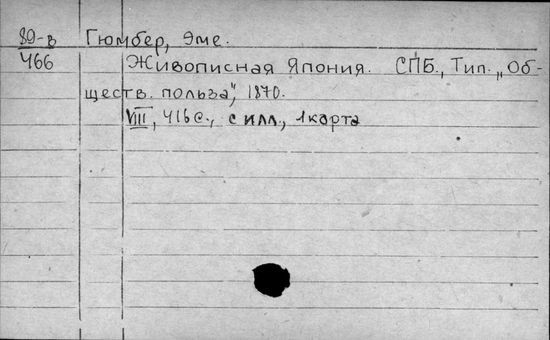 80-в Гюмбер, Эме.
466 Живописная Япония. СПБ., Тип. „Об-
ществ. польза", 1870.
VIII, 416 с., с илл., 1 карта